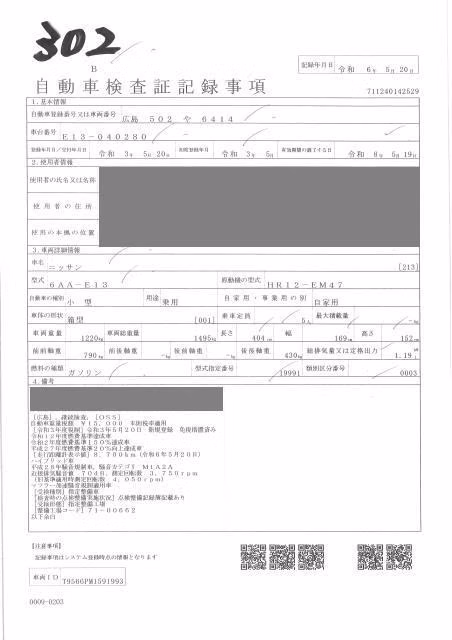 302
B
記録年月日 令和 6年 5月 20日
自動車検査証記録事項
711240142529
1.基本情報
自動車登録番号又は車両番号 広島 502 や 6414
車台番号 E13-040280
登録年月日/交付年月日 令和 3年 5月 20日 初度登録年月 令和 3年 5月 有効期間の満了する日 令和 8年 5月 19日
2.使用者情報
使用者の氏名又は名称
使用者の住所
使用の本拠の位置
3.車両詳細情報
車名 ニッサン [213]
型式 6AA-E13 原動機の型式 HR12-EM47
自動車の種別 小型 用途 乗用 自家用・事業用の別 自家用
車体の形状 箱型 [001] 乗車定員 5人 最大積載量 -kg
車両重量 1220kg 車両総重量 1495kg 長さ 404cm 幅 169cm 高さ 152cm
前前軸重 790kg 前後軸重 -kg 後前軸重 -kg 後後軸重 430kg 総排気量又は定格出力 1.19L
燃料の種類 ガソリン 型式指定番号 19991 類別区分番号 0003
4.備考
[広島], 継続検査, [OSS]
自動車重量税額 ¥15,000 本則税率適用
[令和3年度税制] 令和3年5月20日 新規登録 免税措置済み
令和12年度燃費基準達成車
平成27年度燃費基準20%向上達成車
[走行距離計表示値] 8,700km (令和6年5月20日)
ハイブリッド車
平成28年騒音規制車, 騒音カテゴリ M1A2A
近接排気騒音値 70dB, 測定回転数 3,750rpm
(旧基準適用時測定回転数 4,050rpm)
マフラー加速騒音規制適用車
[受検種別] 指定整備車
[検査時の点検整備実施状況] 点検整備記録簿記載あり
[受検形態] 指定整備工場
[整備工場コード] 71-00662
以下余白
[注意事項]
記録事項はシステム登録時点の情報となります
車両ID T9586PM1591993
0009-0203